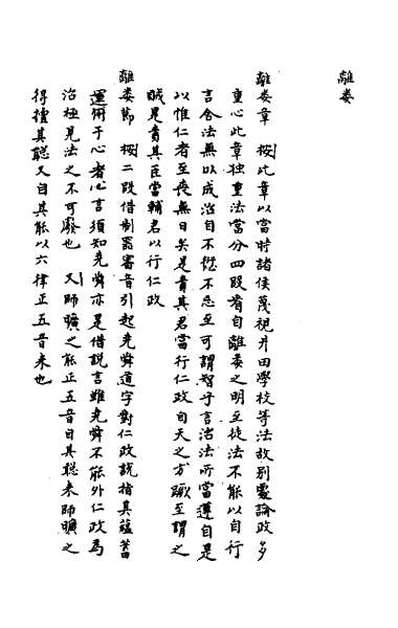 離婁
離婁章 按此章以當時諸侯蔑視井田學校等法故別處論政多
重心此章独重法當分四段看自離婁之明至徒法不能以自行
言舍法無以成治自不愆不忘至可謂智乎言治法所當遵自是
以惟仁者至喪無日矣是責其君當行仁政自天之方蹶至謂之
賊是責其臣當輔君以行仁政
離婁節 按二段借制器審音引起堯舜道字對仁政說指其蘊蓄
運用于心者心言須知堯舜亦是借說言雖堯舜不能外仁政為
治極見法之不可廢也 又師曠之能正五音自其聰来師曠之
得擅其聰又自其能以六律正五音来也